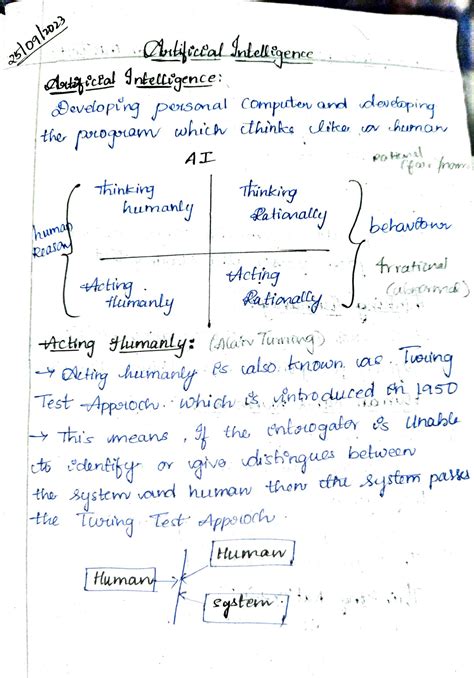 25/09/2023
Artificial Intelligence
Artificial Intelligence:
Developing personal computer and developing
the program which thinks like a human
AI
rational
Thinking humanly
Thinking Rationally
human Reason
behaviour
Acting Humanly
Acting Rationally
Irrational
(abnormal)
Acting Humanly: (Alain Turning)
→ Acting humanly is also known as Turing
Test Approch. which is introduced in 1950
→ This means, If the intorogator is Unable
to identify or give distingues between
the system and human then the system passes
the Turing Test Approch.
Human
Human
system